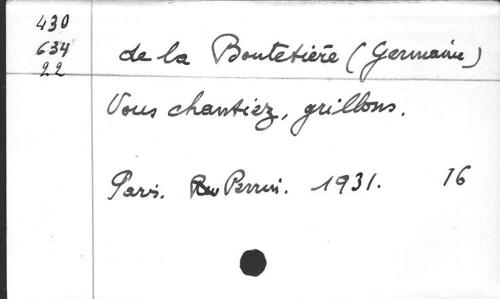 430
634
22
de la Boutetière (Germaine)
Vous chantiez, grillons.
Paris. Perrin. 1931. 16